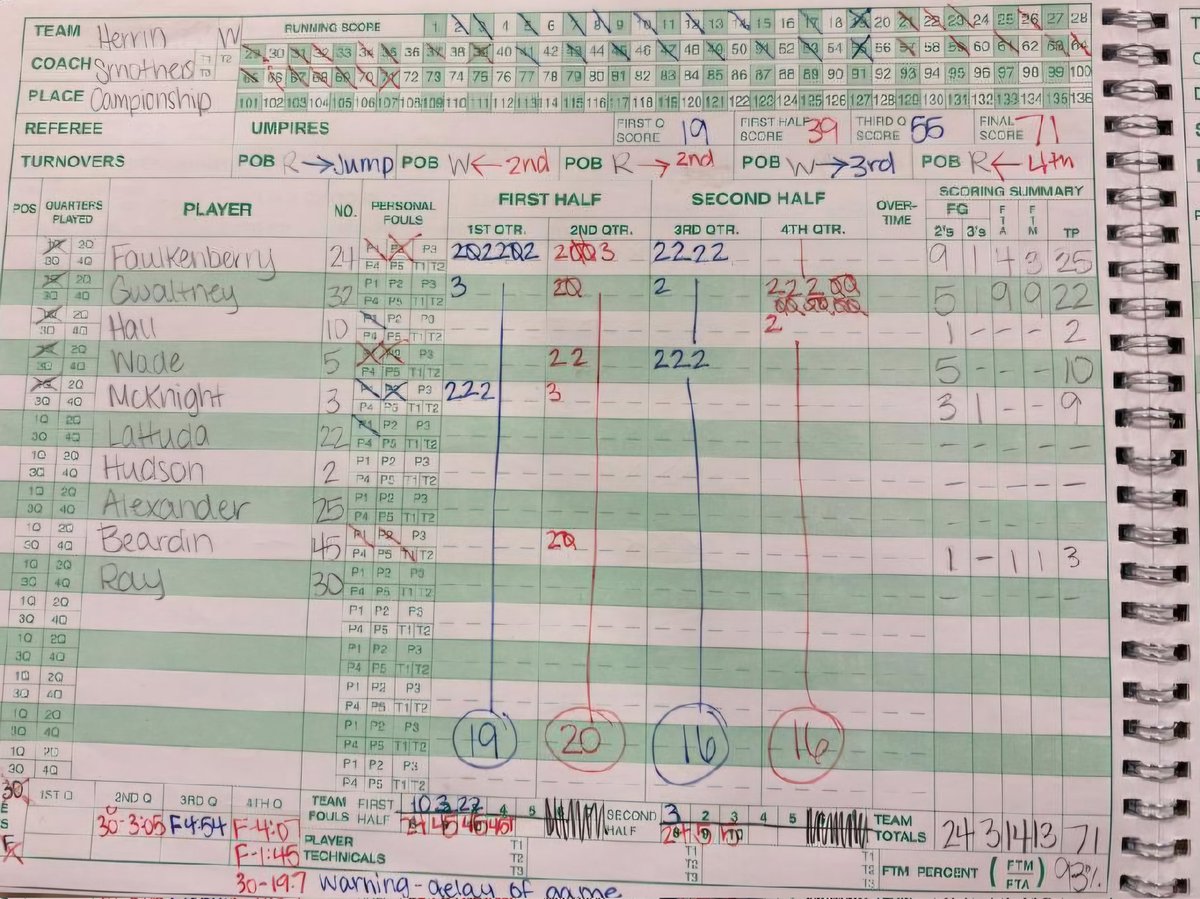 TEAM Herrin W RUNNING SCORE 1 2 3 4 5 6 7 8 9 10 11 12 13 14 15 16 17 18 19 20 21 22 23 24 25 26 27 28
COACH Smothers T1 T2 T3 29 30 31 32 33 34 35 36 37 38 39 40 41 42 43 44 45 46 47 48 49 50 51 52 53 54 55 56 57 58 59 60 61 62 63 64
65 66 67 68 69 70 71 72 73 74 75 76 77 78 79 80 81 82 83 84 85 86 87 88 89 90 91 92 93 94 95 96 97 98 99 100
PLACE Campionship 101 102 103 104 105 106 107 108 109 110 111 112 113 114 115 116 117 118 119 120 121 122 123 124 125 126 127 128 129 130 131 132 133 134 135 136
REFEREE UMPIRES FIRST Q SCORE 19 FIRST HALF SCORE 39 THIRD Q SCORE 55 FINAL SCORE 71
TURNOVERS POB R→Jump POB W←2nd POB R→2nd POB W→3rd POB R←4th
POS QUARTERS PLAYED PLAYER NO. PERSONAL FOULS FIRST HALF SECOND HALF OVER-TIME SCORING SUMMARY
1ST QTR. 2ND QTR. 3RD QTR. 4TH QTR. FG 2's 3's FTA FTM TP
1Q 2Q Faulkenberry 24 P1 P2 P3 2022202 2003 2222 9 1 4 3 25
3Q 4Q P4 P5 T1 T2
1Q 2Q Gwaltney 32 P1 P2 P3 3 20 2 22200 5 1 9 9 22
3Q 4Q P4 P5 T1 T2 000000
1Q 2Q Hall 10 P1 P2 P3 2 1 - - - 2
3Q 4Q P4 P5 T1 T2
1Q 2Q Wade 5 P1 P2 P3 22 222 5 - - - 10
3Q 4Q P4 P5 T1 T2
1Q 2Q McKnight 3 P1 P2 P3 222 3 3 1 - - 9
3Q 4Q P4 P5 T1 T2
1Q 2Q Lattuda 22 P1 P2 P3 - - - - -
3Q 4Q P4 P5 T1 T2
1Q 2Q Hudson 2 P1 P2 P3 - - - - -
3Q 4Q P4 P5 T1 T2
1Q 2Q Alexander 25 P1 P2 P3 - - - - -
3Q 4Q P4 P5 T1 T2
1Q 2Q Beardin 45 P1 P2 P3 20 1 - 1 1 3
3Q 4Q P4 P5 T1 T2
1Q 2Q Ray 30 P1 P2 P3 - - - - -
3Q 4Q P4 P5 T1 T2
1Q 2Q P1 P2 P3
3Q 4Q P4 P5 T1 T2
1Q 2Q P1 P2 P3
3Q 4Q P4 P5 T1 T2
1Q 2Q P1 P2 P3
3Q 4Q P4 P5 T1 T2
1Q 2Q P1 P2 P3
3Q 4Q P4 P5 T1 T2 19 20 16 16
1Q 2Q P1 P2 P3
3Q 4Q P4 P5 T1 T2
30 1ST Q 2ND Q 3RD Q 4TH Q TEAM FOULS FIRST HALF 10 3 22 4 5 SECOND HALF 3 2 3 4 5 TEAM TOTALS 24 3 14 13 71
30-3:05 F4:54 F-4:07 24 45 45 45 24 5
F F-1:45 PLAYER TECHNICALS T1 T2 T3 T1 T2 T3 T1 T2 T3 FTM PERCENT (FTM/FTA) 93%
30-19.7 warning-delay of game